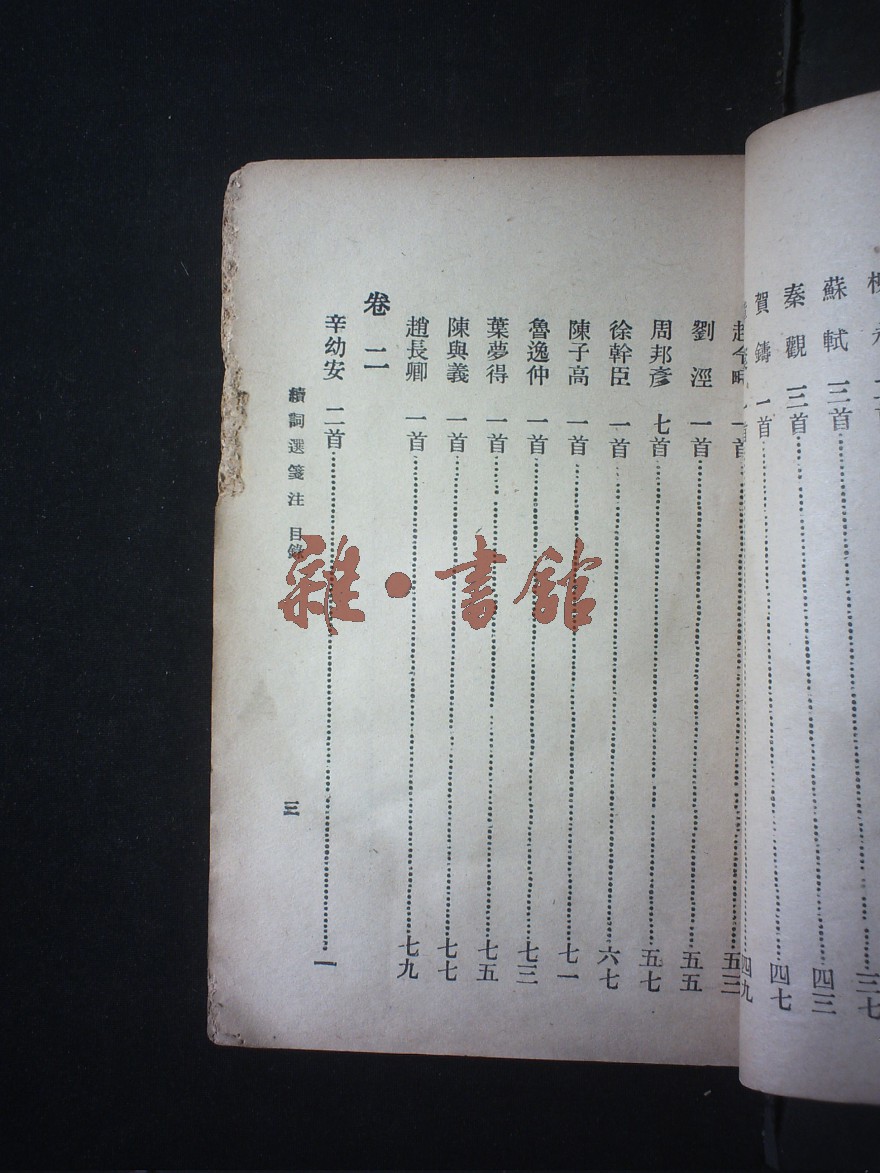 蘇軾 三首 四三
秦觀 三首 四七
賀鑄 一首 四九
趙令畤 一首 五三
劉涇 一首 五五
周邦彥 七首 五七
徐幹臣 一首 六七
陳子高 一首 七一
魯逸仲 一首 七三
葉夢得 一首 七五
陳與義 一首 七七
趙長卿 一首 七九
卷二
辛幼安 二首 一
續詞選箋注 目錄 三
雜·書館